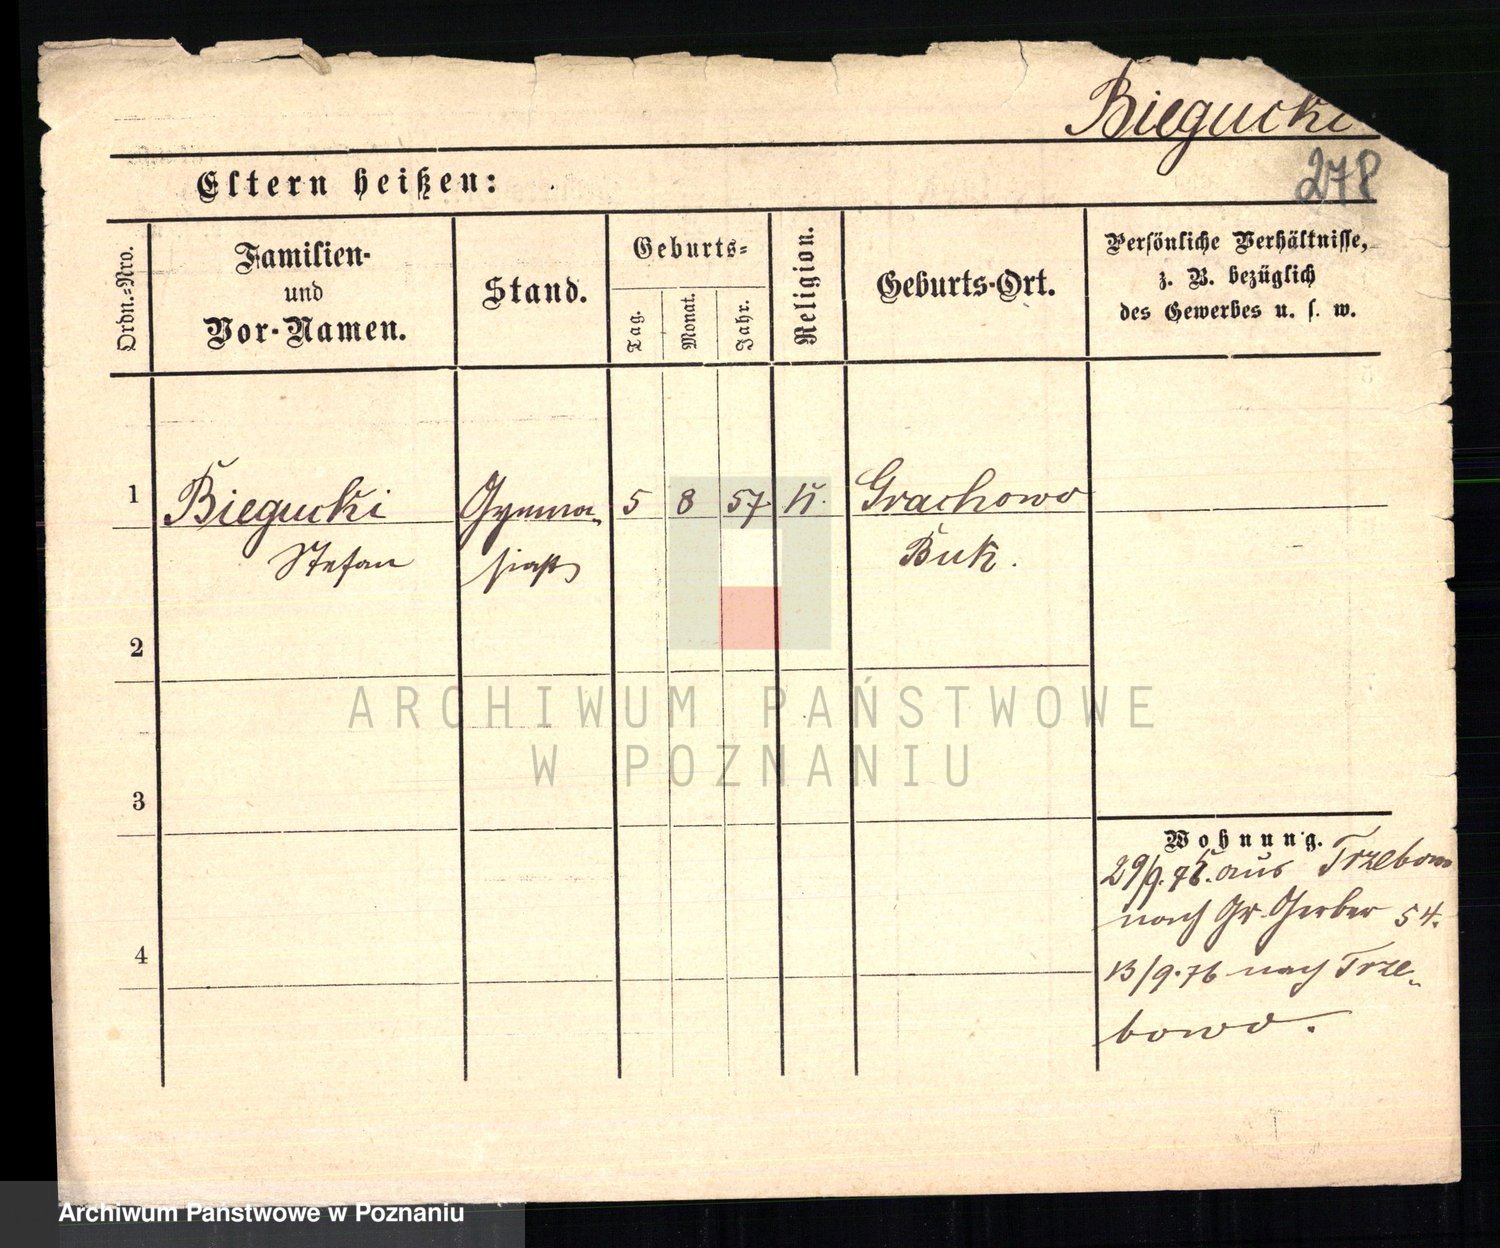 Biegucki
278
Eltern heißen:
Ordn.-Nro.
Familien-
und
Vor-Namen.
Stand.
Geburts-
Tag.
Monat.
Jahr.
Religion.
Geburts-Ort.
Persönliche Verhältnisse,
z. B. bezüglich
des Gewerbes u. s. w.
1 Biegucki Gymna- 5 8 57. K. Grachowo
Stefan siast Buk.
2
ARCHIWUM PAŃSTWOWE
W POZNANIU
3
Wohnung.
29/9. 75. aus Trzebowo
nach Gr. Gerber 54.
4
13/9.76 nach Trze-
bowo.
Archiwum Państwowe w Poznaniu